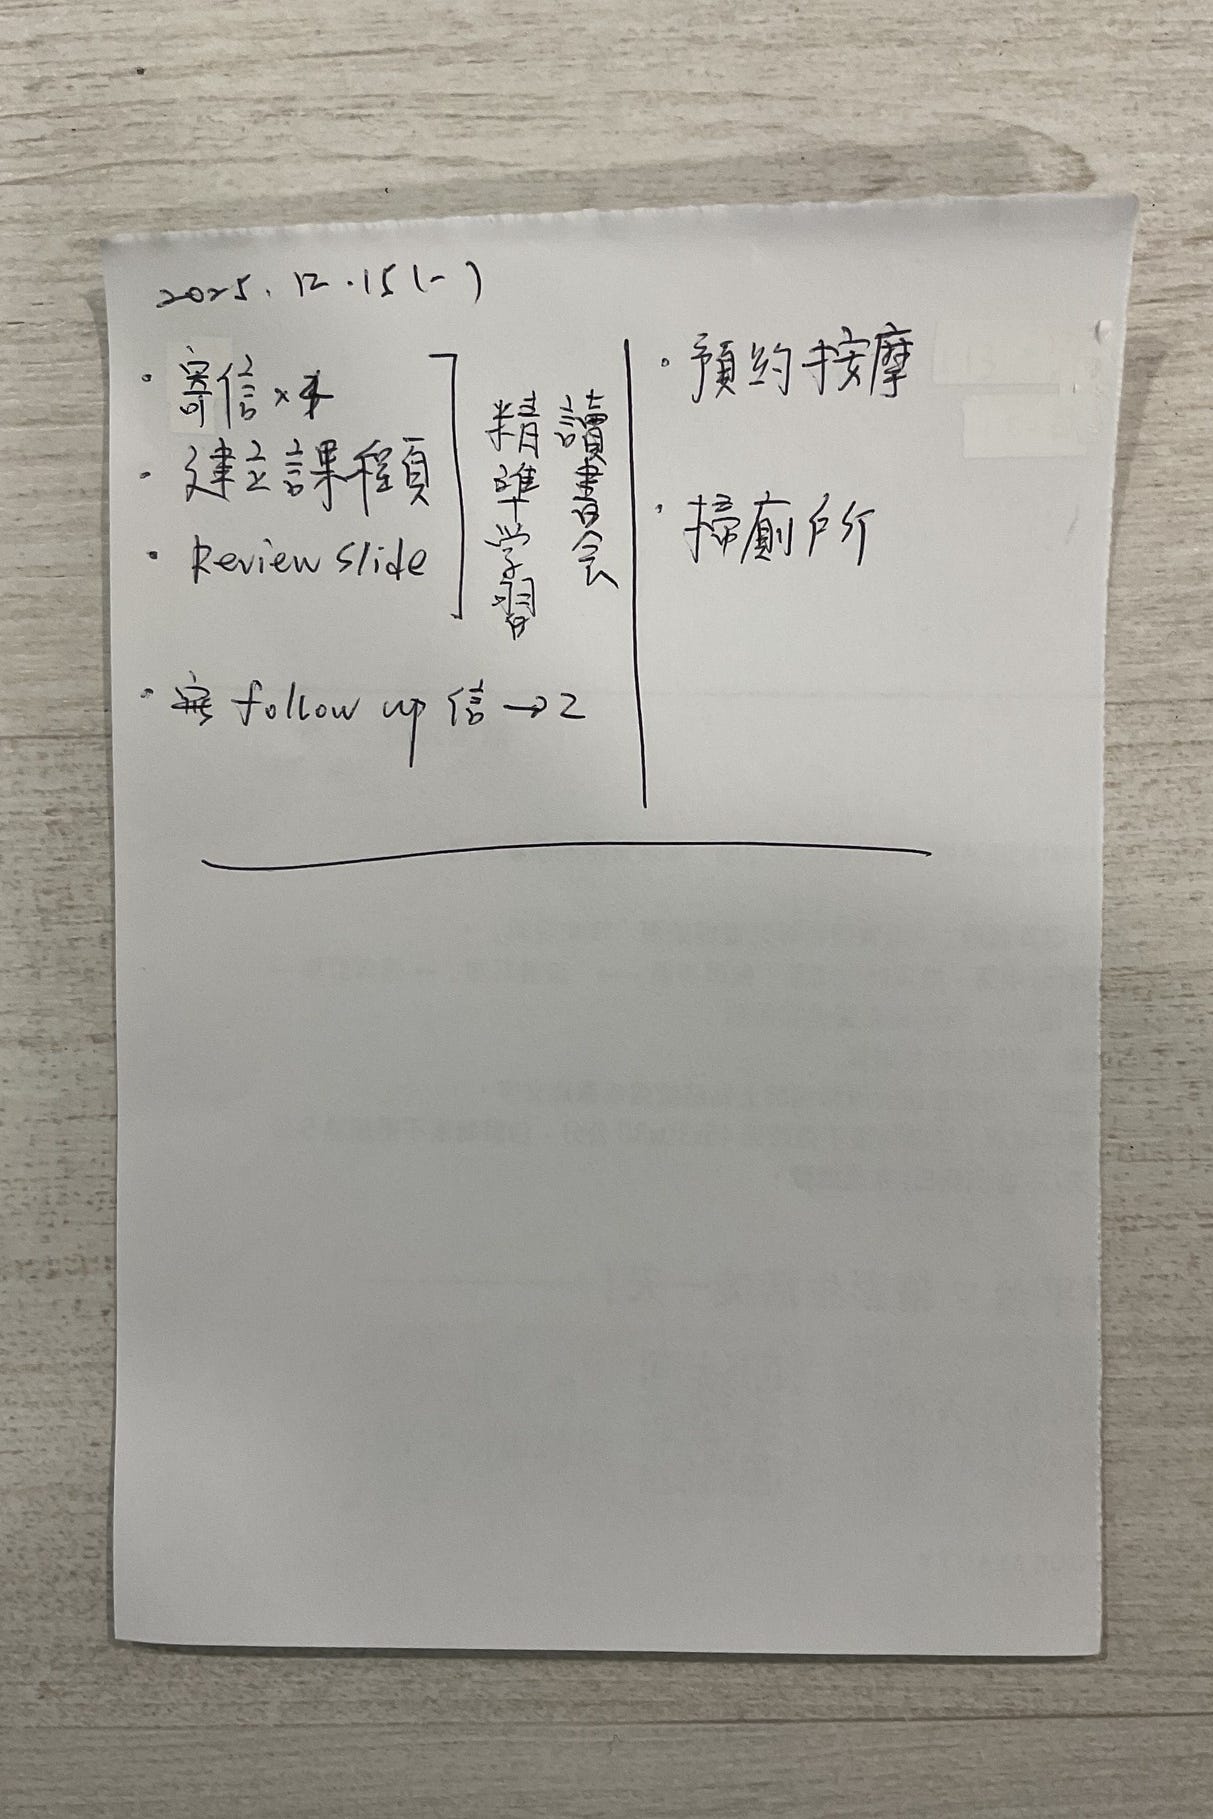 2025.12.15(一)
· 寄信×
· 建立課程頁
· Review slide
讀書会
精準学習
· follow up 信→2
· 預約按摩
· 掃廁所